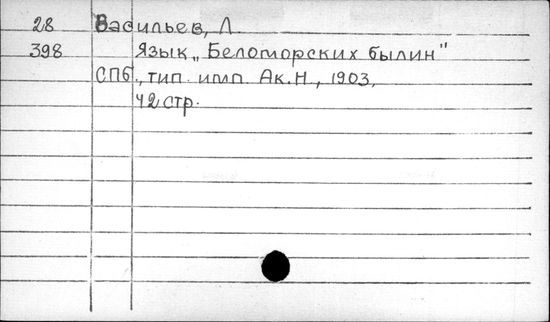 28 Васильев, Л.
398 Язык „Беломорских былин"
СПб., тип. имп. Ак. Н., 1903,
42 стр.